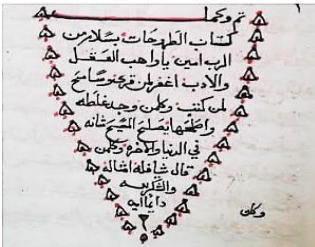 تم وكمل
كتاب الطرحات بسلام من
الرب امين ياواهب العقل
والادب اغفر لمن قرى وسامح
لمن كتب وكلمن وجد غلطه
واصلحها يصلح المسيح شانه
في الدنيا والاخره وكلمن
قال شا فله امثاله
والشكر لله
دايما ابديا
وكان